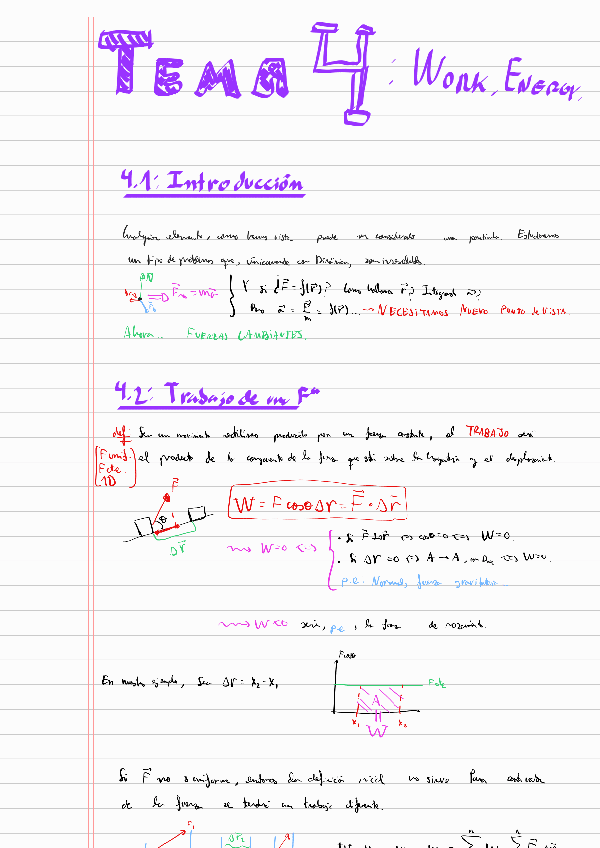 TEMA 4: WORK, ENERGY.
4.1: Introducción
Cualquier elemento, como hemos visto puede ser considerado una partícula. Estudiaremos
un tipo de problemas que, únicamente con Dinámica, son irresolubles.
Y si ¿F = f(r)? Como hallamos r? Integrando a?
Pero a = F/m = f(r)... → NECESITAMOS NUEVO PUNTO DE VISTA
Ahora... FUERZAS CAMBIANTES.
4.2: Trabajo de un Fª
def: Sea un movimiento rectilíneo producido por una fuerza constante, el TRABAJO será
F unif.
F cte.
1D
el producto de la componente de la fuerza que está sobre la trayectoria y el desplazamiento.
F
θ
Δr
W = F cosθ Δr = F · Δr
W=0 <=>
· Si F ⊥ Δr <=> cosθ=0 <=> W=0.
· Si Δr = 0 <=> A → A, <=> W=0.
p.e. Normal, fuerza gravitatoria
W<0 sería, p.e., la fuerza de rozamiento.
En nuestro ejemplo, sea Δr = x₂ - x₁
F cosθ
F cte
A
x₁
x₂
W
Si F no es uniforme, entonces la definición inicial no sirve. Para cada valor
de la fuerza se tendrá un trabajo diferente.